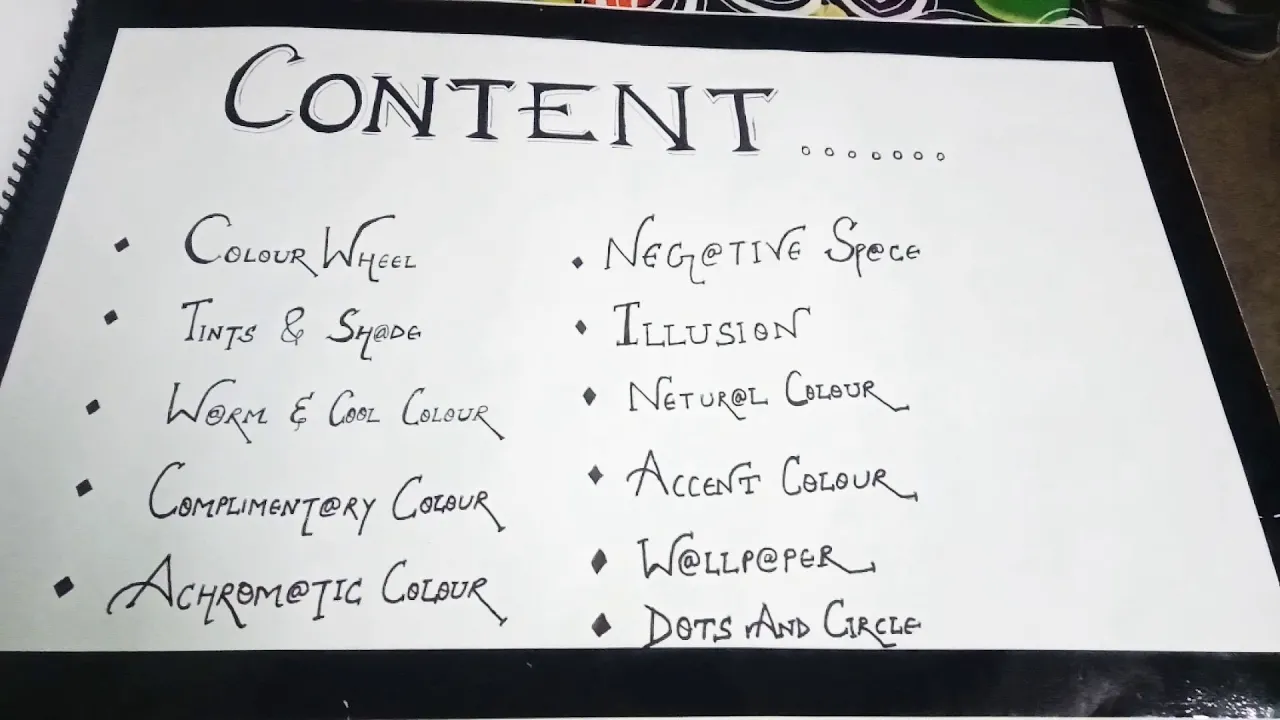 CONTENT .......
COLOUR WHEEL
TINTS & SH@DE
W@RM & COOL COLOUR
COMPLIMENT@RY COLOUR
ACHROM@TIC COLOUR
NEG@TIVE SP@CE
ILLUSION
NETUR@L COLOUR
ACCENT COLOUR
W@LLP@PER
DOTS AND CIRCLE